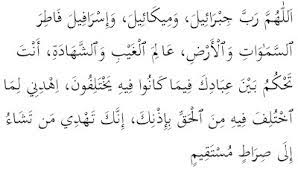 اَللّٰهُمَّ رَبَّ جِبْرَائِيلَ، وَمِيكَائِيلَ، وَإِسْرَافِيلَ فَاطِرَ
السَّمَوَاتِ وَالْأَرْضِ، عَالِمَ الْغَيْبِ وَالشَّهَادَةِ، أَنْتَ
تَحْكُمُ بَيْنَ عِبَادِكَ فِيمَا كَانُوا فِيهِ يَخْتَلِفُونَ، اِهْدِنِي لِمَا
اخْتُلِفَ فِيهِ مِنَ الْحَقِّ بِإِذْنِكَ، إِنَّكَ تَهْدِي مَن تَشَاءُ
إِلَى صِرَاطٍ مُسْتَقِيمٍ